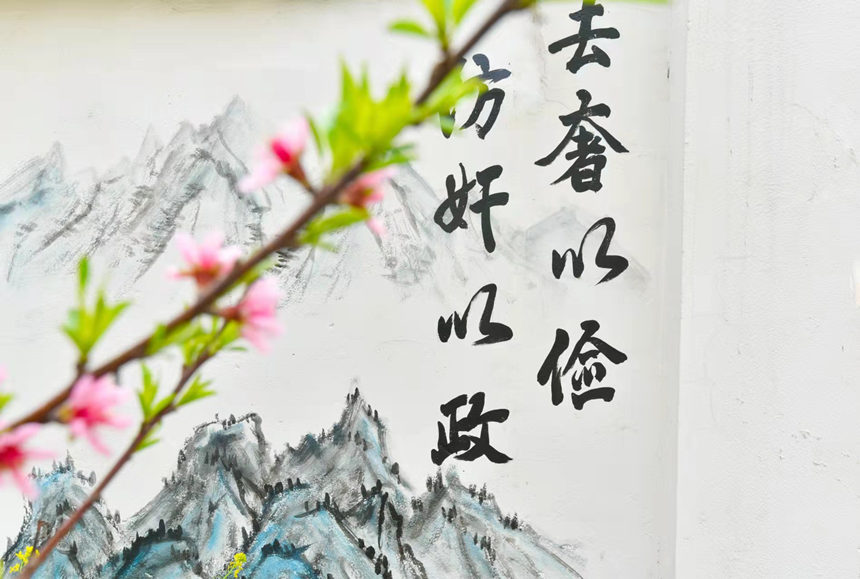 去奢以俭
防奸以政